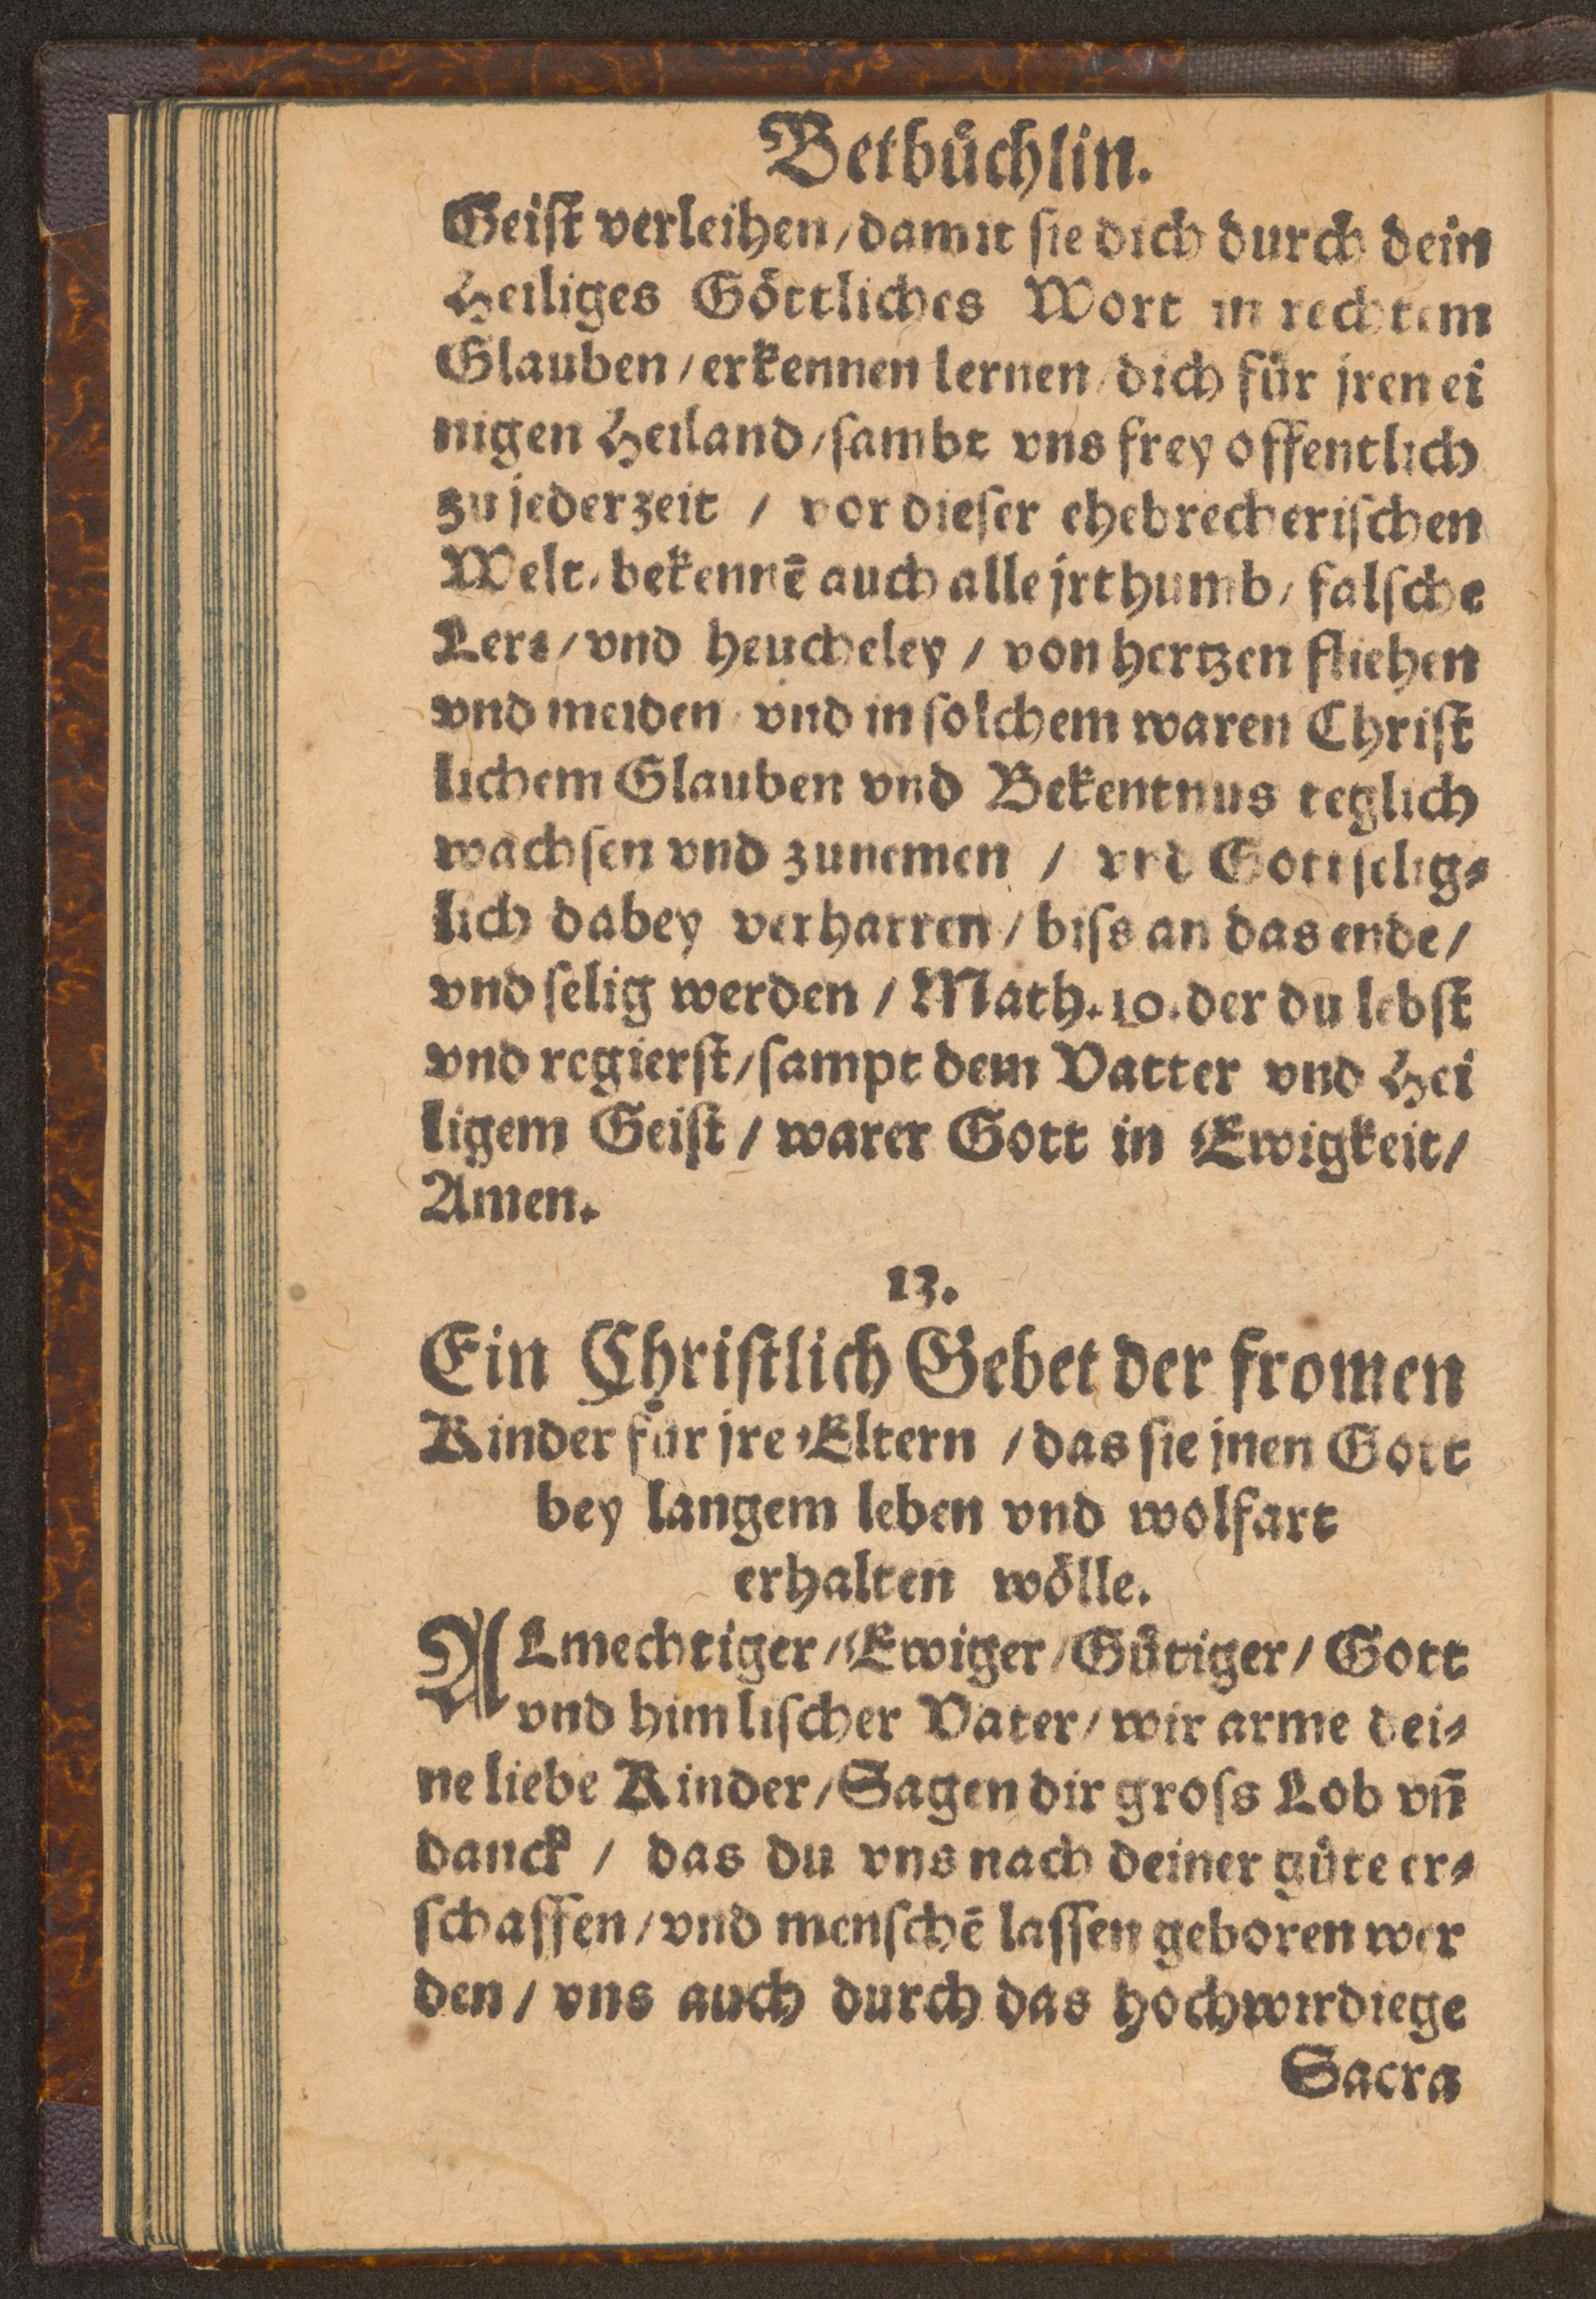 Betbuͤchlin.
Geiſt verleihen/damit ſie dich durch dein
Heiliges Goͤttliches Wort in rechtem
Glauben/erkennen lernen/dich fuͤr jren ei
nigen Heiland/ſambt vns frey offentlich
zu jederzeit / vor dieſer ehebrecheriſchen
Welt/bekennē auch alle jrthumb/falſche
Lere/vnd heucheley/von hertzen fliehen
vnd meiden/vnd in ſolchem waren Chriſt
lichem Glauben vnd Bekentnus teglich
wachſen vnd zunemen / vnd Gottſelig⸗
lich dabey verharren/biſs an das ende/
vnd ſelig werden/Math.10.der du lebſt
vnd regierſt/ſampt dem Vatter vnd Hei
ligem Geiſt/warer Gott in Ewigkeit/
Amen.
13.
Ein Chriſtlich Gebet der fromen
Kinder fuͤr jre Eltern /das ſie jnen Gott
bey langem leben vnd wolfart
erhalten woͤlle.
ALmechtiger/Ewiger/Guͤtiger/Gott
vnd himliſcher Vater/wir arme dei⸗
ne liebe Kinder/Sagen dir groſs Lob vn̄
danck / das du vns nach deiner guͤte er⸗
ſchaffen/vnd menſchē laſſen geboren wer
den/vns auch durch das hochwirdiege
Sacra